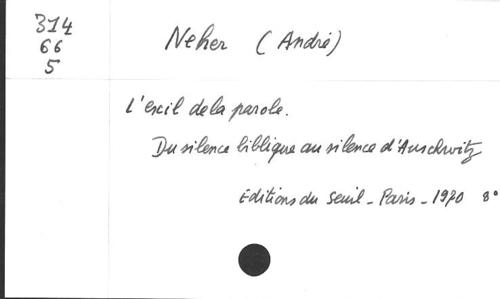 314
66
5
Neher (André)
L'exil de la parole.
Du silence biblique au silence d'Auschwitz
Editions du Seuil - Paris - 1970 8°